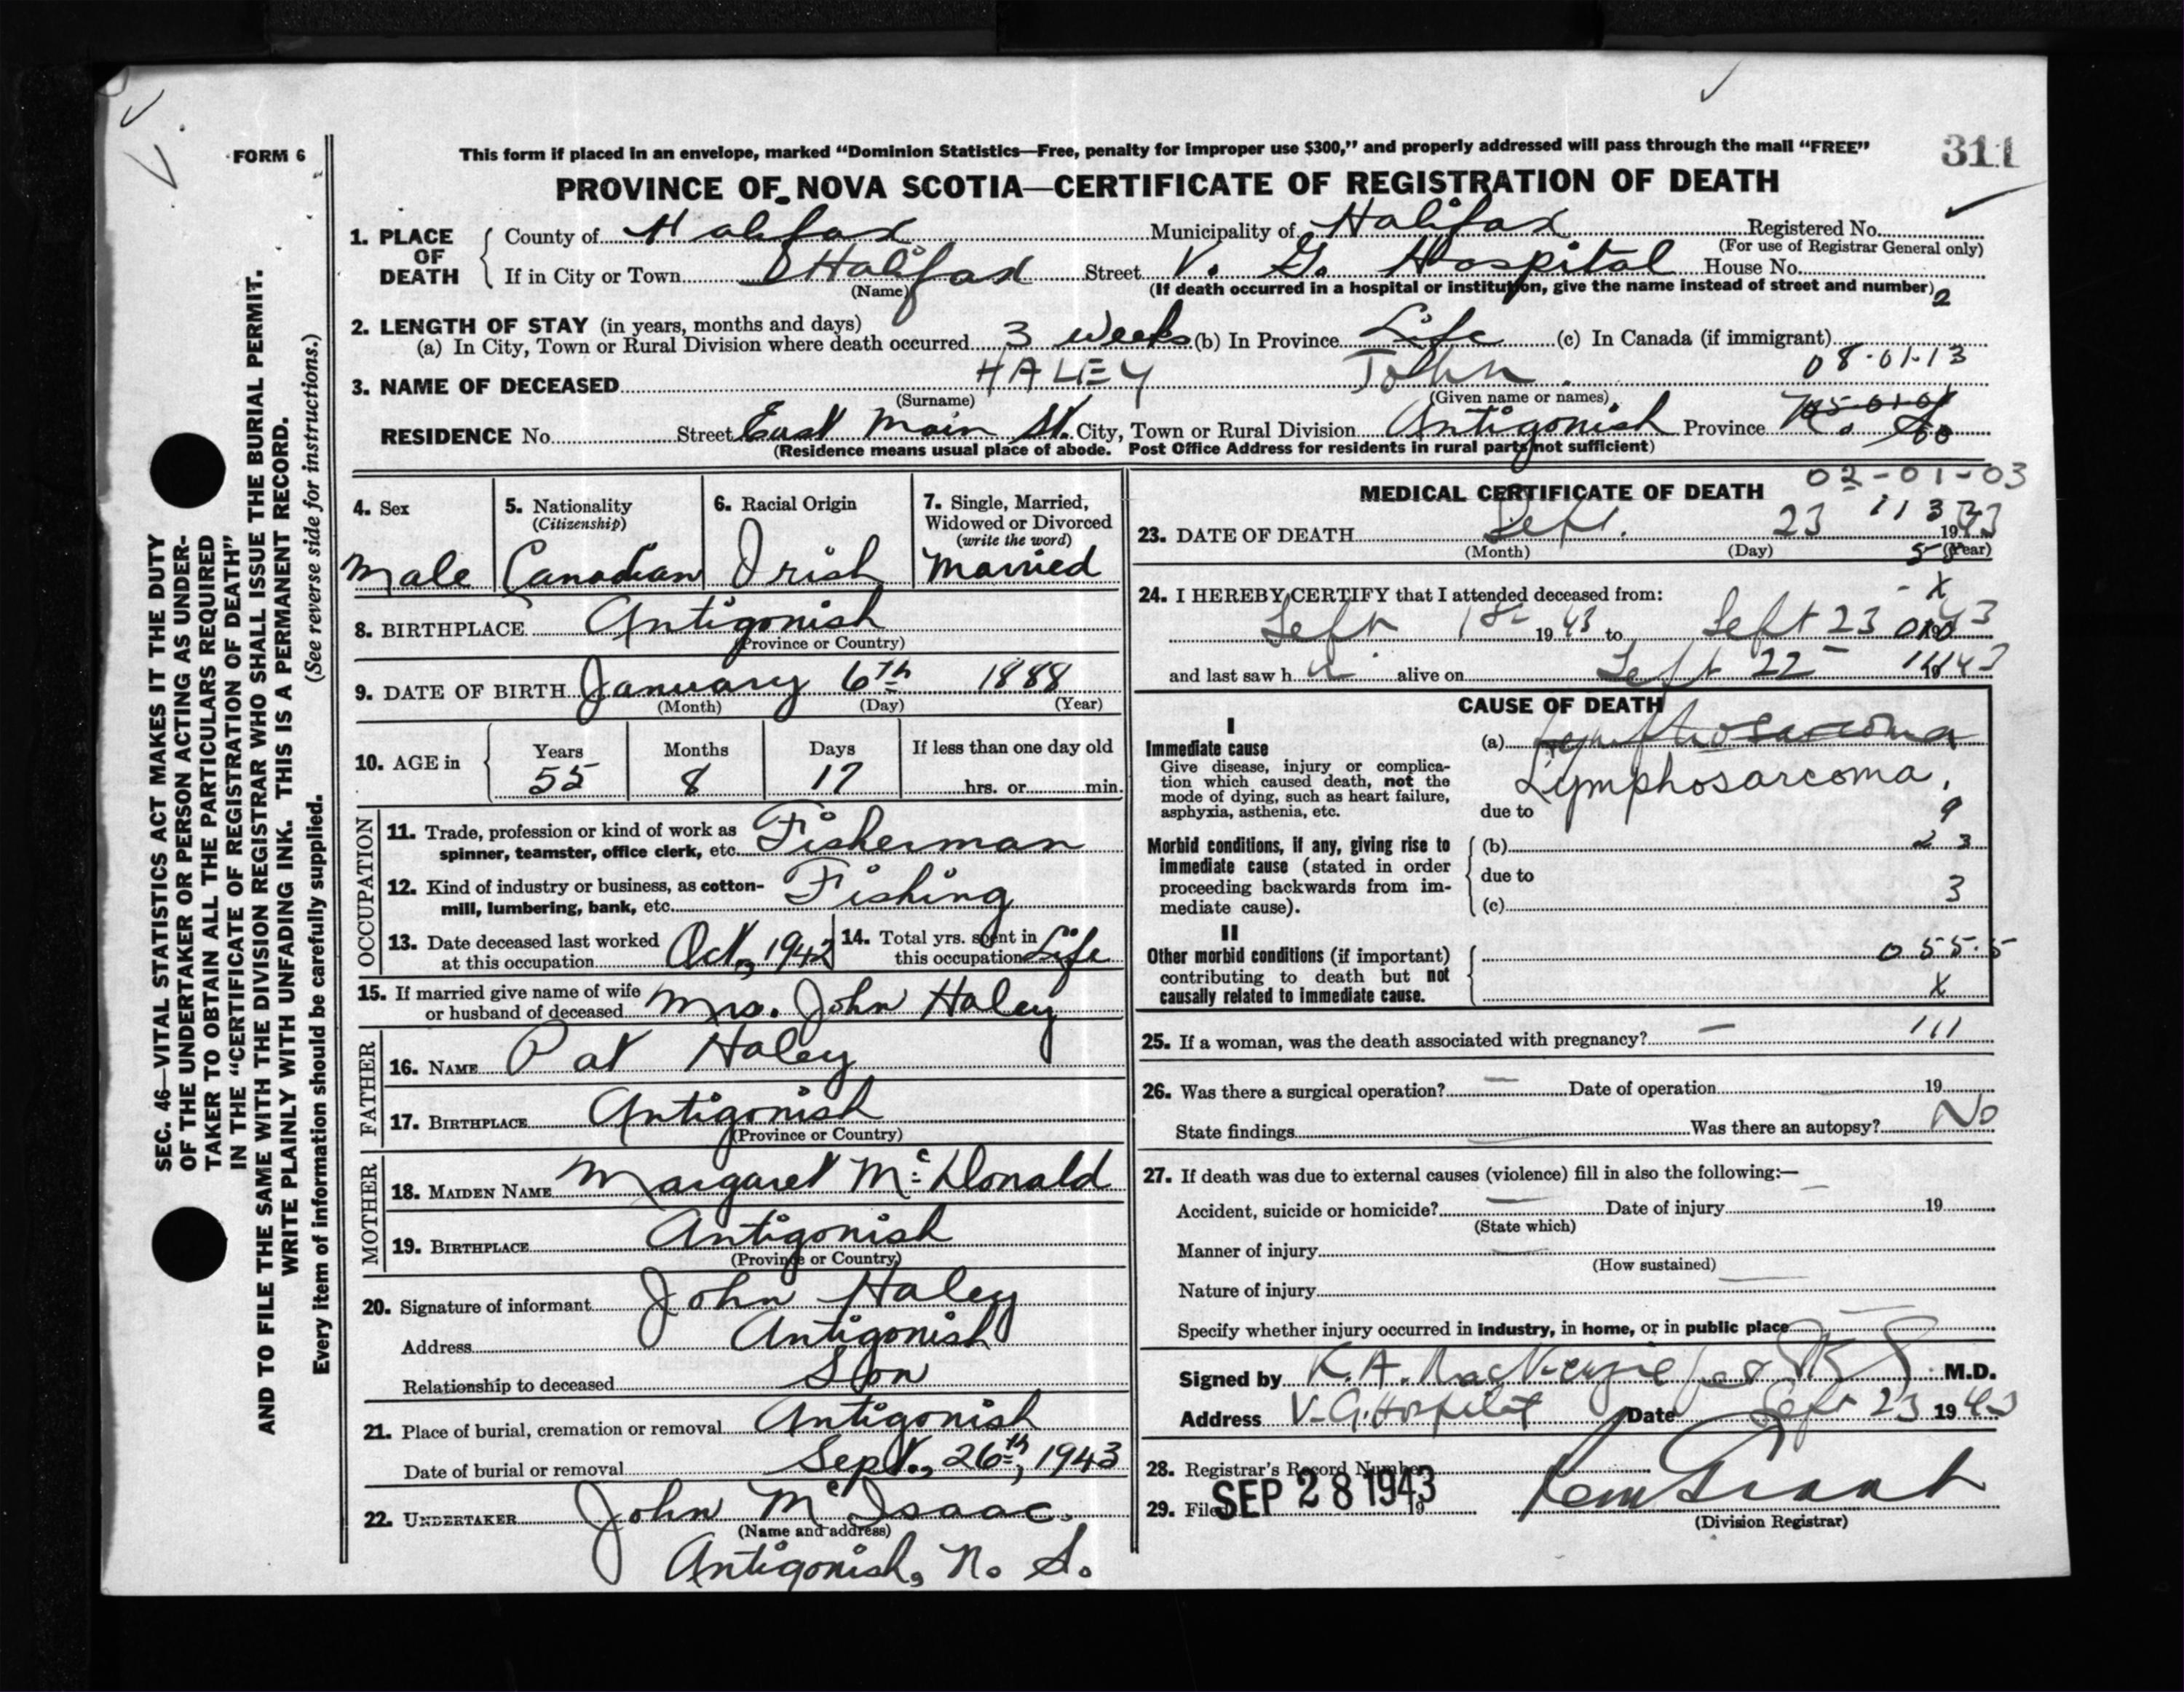 FORM 6
This form if placed in an envelope, marked "Dominion Statistics—Free, penalty for improper use $300," and properly addressed will pass through the mail "FREE"
311
PROVINCE OF NOVA SCOTIA—CERTIFICATE OF REGISTRATION OF DEATH
1. PLACE OF DEATH
County of Halifax Municipality of Halifax Registered No.
(For use of Registrar General only)
If in City or Town Halifax Street V. G. Hospital House No.
(Name) (If death occurred in a hospital or institution, give the name instead of street and number)
2
2. LENGTH OF STAY (in years, months and days)
(a) In City, Town or Rural Division where death occurred 3 weeks (b) In Province Life (c) In Canada (if immigrant)
08-01-13
3. NAME OF DECEASED HALEY John.
(Surname) (Given name or names)
RESIDENCE No. Street East Main St. City, Town or Rural Division Antigonish Province N. S.
(Residence means usual place of abode. Post Office Address for residents in rural parts not sufficient)
4. Sex
Male
5. Nationality
(Citizenship)
Canadian
6. Racial Origin
Irish
7. Single, Married,
Widowed or Divorced
(write the word)
Married
8. BIRTHPLACE Antigonish
(Province or Country)
9. DATE OF BIRTH January 6th 1888
(Month) (Day) (Year)
10. AGE in
Years Months Days If less than one day old
55 8 17 hrs. or min.
OCCUPATION
11. Trade, profession or kind of work as
spinner, teamster, office clerk, etc. Fisherman
12. Kind of industry or business, as cotton-
mill, lumbering, bank, etc. Fishing
13. Date deceased last worked
at this occupation Oct, 1942
14. Total yrs. spent in
this occupation Life
15. If married give name of wife
or husband of deceased Mrs. John Haley
FATHER
16. NAME Pat Haley
17. BIRTHPLACE Antigonish
(Province or Country)
MOTHER
18. MAIDEN NAME Margaret McDonald
19. BIRTHPLACE Antigonish
(Province or Country)
20. Signature of informant John Haley
Address Antigonish
Relationship to deceased Son
21. Place of burial, cremation or removal Antigonish
Date of burial or removal Sept., 26th, 1943
22. UNDERTAKER John McIsaac.
(Name and address)
Antigonish, N. S.
MEDICAL CERTIFICATE OF DEATH
02-01-03
23. DATE OF DEATH Sept. 23 1943
(Month) (Day) (Year)
24. I HEREBY CERTIFY that I attended deceased from:
Sept 1st 1943 to Sept 23 1943
and last saw h alive on Sept 22 1943
CAUSE OF DEATH
I
Immediate cause
Give disease, injury or complica-
tion which caused death, not the
mode of dying, such as heart failure,
asphyxia, asthenia, etc.
(a) Lymphosarcoma
Lymphosarcoma,
due to
9
Morbid conditions, if any, giving rise to
immediate cause (stated in order
proceeding backwards from im-
mediate cause).
(b) 23
due to
3
(c)
II
Other morbid conditions (if important)
contributing to death but not
causally related to immediate cause.
055.5
X
25. If a woman, was the death associated with pregnancy? — 111
26. Was there a surgical operation? — Date of operation 19
State findings Was there an autopsy? No
27. If death was due to external causes (violence) fill in also the following:—
Accident, suicide or homicide? — Date of injury 19
(State which)
Manner of injury
(How sustained)
Nature of injury
Specify whether injury occurred in industry, in home, or in public place
Signed by K. A. MacKenzie M.D.
Address V. G. Hospital Date Sept 23 1943
28. Registrar's Record Number
29. Filed SEP 28 1943 19
(Division Registrar)
SEC. 46—VITAL STATISTICS ACT MAKES IT THE DUTY
OF THE UNDERTAKER OR PERSON ACTING AS UNDER-
TAKER TO OBTAIN ALL THE PARTICULARS REQUIRED
IN THE "CERTIFICATE OF REGISTRATION OF DEATH"
AND TO FILE THE SAME WITH THE DIVISION REGISTRAR WHO SHALL ISSUE THE BURIAL PERMIT.
WRITE PLAINLY WITH UNFADING INK. THIS IS A PERMANENT RECORD.
Every item of information should be carefully supplied. (See reverse side for instructions.)